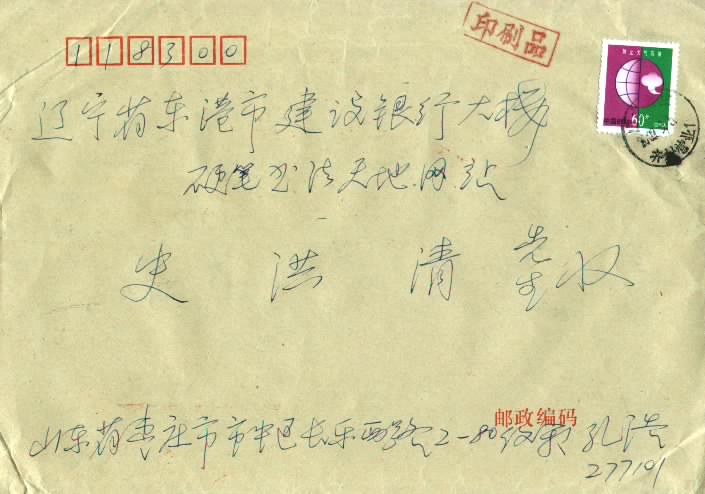 118300
印刷品
防止大气污染
60分
辽宁省东港市建设银行大楼
硬笔书法天地网站
史洪清先生收
邮政编码
山东省枣庄市市中区长乐西路2-80 孔浩
277101